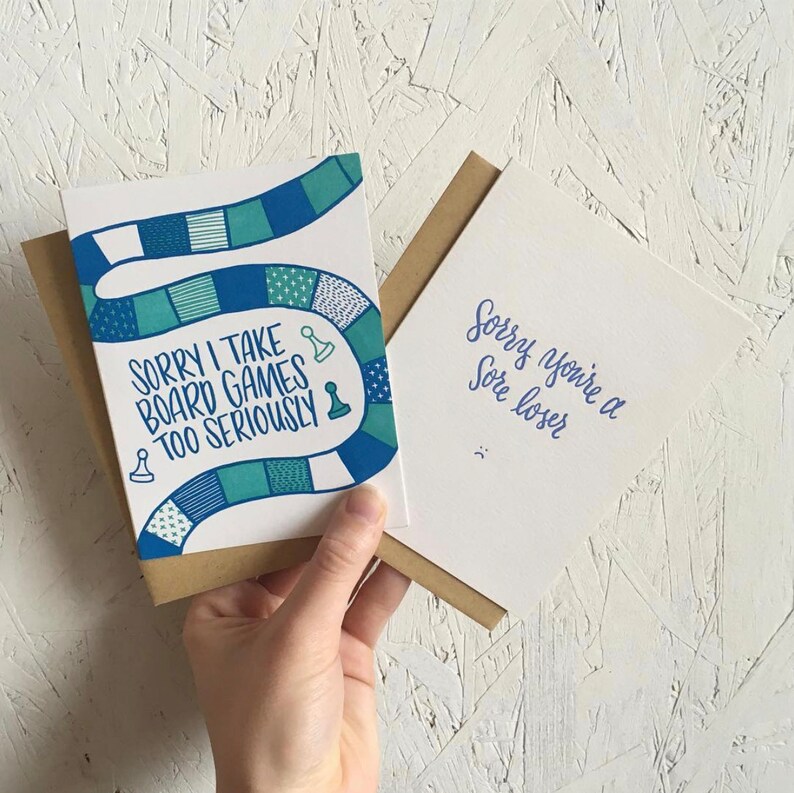 SORRY I TAKE
BOARD GAMES
TOO SERIOUSLY
Sorry you're a
Sore loser
:(